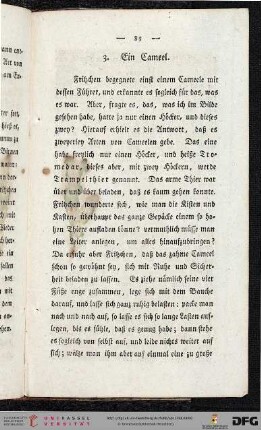 — 83 —
3. Ein Cameel.
Fritzchen begegnete einst einem Cameele mit
dessen Führer, und erkannte es sogleich für das, was
es war. Aber, fragte er, das, was ich im Bilde
gesehen habe, hatte ja nur einen Höcker, und dieses
zwey? Hierauf erhielt er die Antwort, daß es
zweyerley Arten von Cameelen gebe. Das eine
habe freylich nur einen Höcker, und heiße Tro-
medar, dieses aber, mit zwey Höckern, werde
Trampelthier genannt. Das arme Thier war
über und über beladen, daß es kaum gehen konnte.
Fritzchen wunderte sich, wie man die Kisten und
Kasten, überhaupt das ganze Gepäcke einem so ho-
hen Thiere aufladen könne? vermuthlich müsse man
eine Leiter anlegen, um alles hinaufzubringen?
Da erfuhr aber Fritzchen, daß das zahme Cameel
schon so gewöhnt sey, sich mit Ruhe und Sicher-
heit beladen zu lassen. Es ziehe nämlich seine vier
Füße enge zusammen, lege sich mit dem Bauche
darauf, und lasse sich ganz ruhig belasten: packe man
nach und nach auf, so lasse es sich so lange Lasten aufle-
gen, bis es fühle, daß es genug habe; dann stehe
es sogleich von selbst auf, und leide nichts weiter auf
sich; wälze man ihm aber auf einmal eine zu große
UNIKASSEL
VERSITÄT
DFG